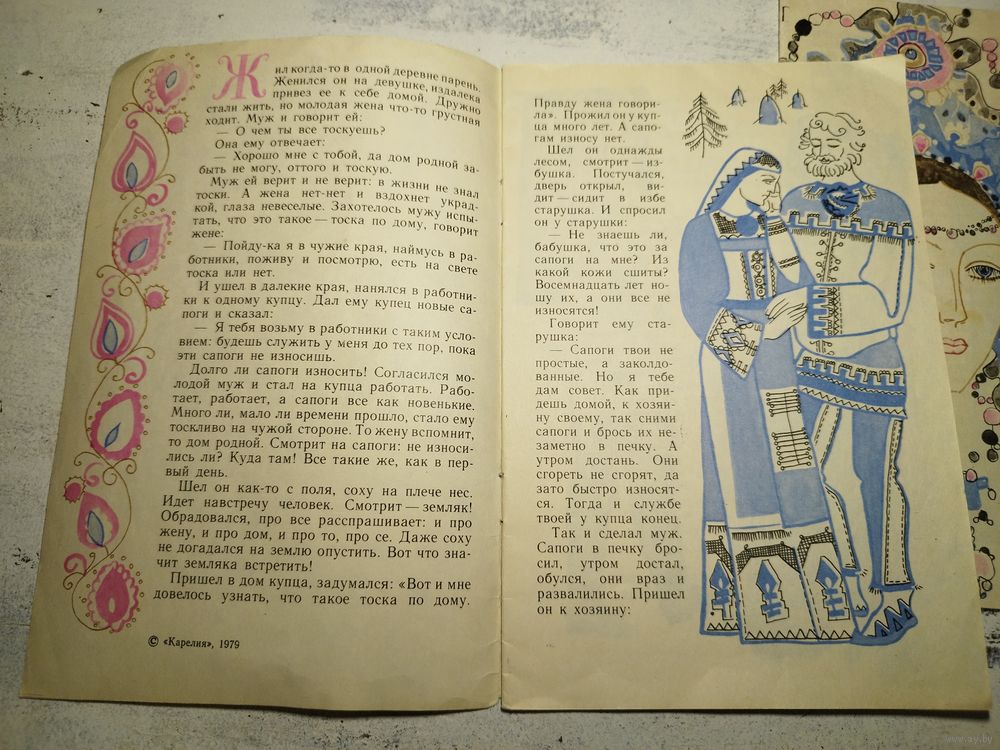 Жил когда-то в одной деревне парень.
Женился он на девушке, издалека
привез ее к себе домой. Дружно
стали жить, но молодая жена что-то грустная
ходит. Муж и говорит ей:
— О чем ты все тоскуешь?
Она ему отвечает:
— Хорошо мне с тобой, да дом родной за-
быть не могу, оттого и тоскую.
Муж ей верит и не верит: в жизни не знал
тоски. А жена нет-нет и вздохнет украд-
кой, глаза невеселые. Захотелось мужу испы-
тать, что это такое — тоска по дому, говорит
жене:
— Пойду-ка я в чужие края, наймусь в ра-
ботники, поживу и посмотрю, есть на свете
тоска или нет.
И ушел в далекие края, нанялся в работни-
ки к одному купцу. Дал ему купец новые са-
поги и сказал:
— Я тебя возьму в работники с таким усло-
вием: будешь служить у меня до тех пор, пока
эти сапоги не износишь.
Долго ли сапоги износить! Согласился мо-
лодой муж и стал на купца работать. Рабо-
тает, работает, а сапоги все как новенькие.
Много ли, мало ли времени прошло, стало ему
тоскливо на чужой стороне. То жену вспомнит,
то дом родной. Смотрит на сапоги: не износи-
лись ли? Куда там! Все такие же, как в пер-
вый день.
Шел он как-то с поля, соху на плече нес.
Идет навстречу человек. Смотрит — земляк!
Обрадовался, про все расспрашивает: и про
жену, и про дом, и про то, про се. Даже соху
не догадался на землю опустить. Вот что зна-
чит земляка встретить!
Пришел в дом купца, задумался: «Вот и мне
довелось узнать, что такое тоска по дому.
© «Карелия», 1979
Правду жена говори-
ла». Прожил он у куп-
ца много лет. А сапо-
гам износу нет.
Шел он однажды
лесом, смотрит — из-
бушка. Постучался,
дверь открыл, ви-
дит — сидит в избе
старушка. И спросил
он у старушки:
— Не знаешь ли,
бабушка, что это за
сапоги на мне? Из
какой кожи сшиты?
Восемнадцать лет но-
шу их, а они все не
износятся!
Говорит ему ста-
рушка:
— Сапоги твои не
простые, а заколдо-
ванные. Но я тебе
дам совет. Как при-
дешь домой, к хозяи-
ну своему, так сними
сапоги и брось их не-
заметно в печку. А
утром достань. Они
сгореть не сгорят, да
зато быстро износят-
ся. Тогда и службе
твоей у купца конец.
Так и сделал муж.
Сапоги в печку бро-
сил, утром достал,
обулся, они враз и
развалились. Пришел
он к хозяину:
www.ay.by